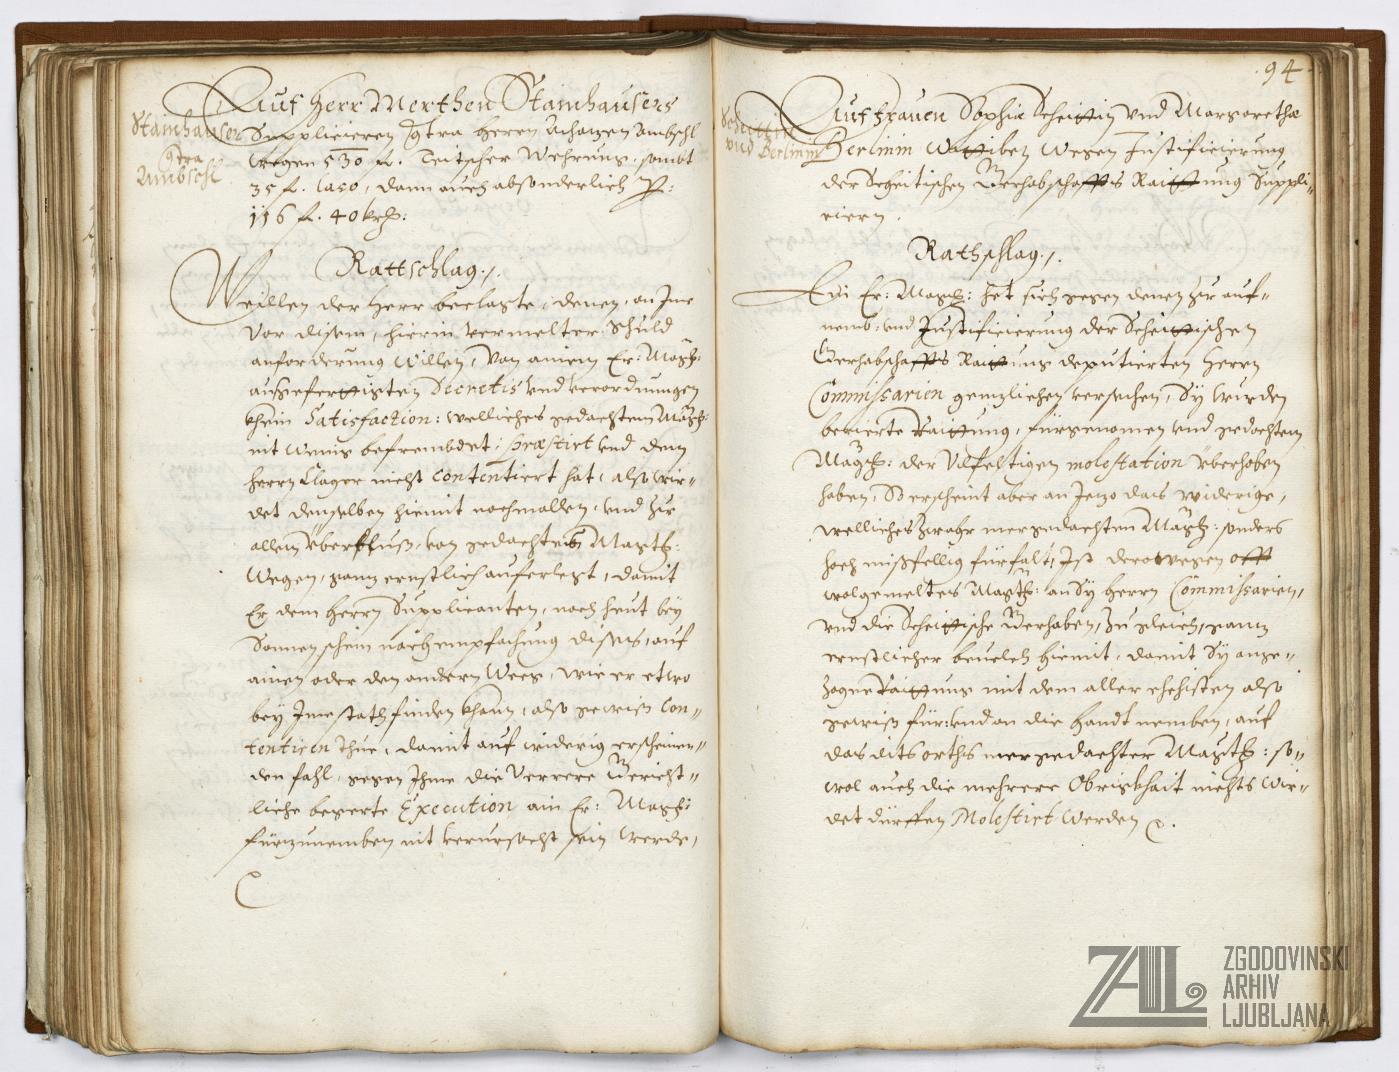 Auf Herr Merthen Stamhausers
Stamhauser
contra
Ambschl
Supplicieren contra Herrn Achatzen Ambschl
wegen 530 fl. Teitscher Wehrung, sambt
35 fl. laso, dann auch absonderlich Pr:
116 fl. 40 khr:
Rattschlag ./.
Weillen der Herr beclagte, denen, an Ime
vor disem, hierin vermelter Schuld
anforderung willen, von ainem Er: Mag:
außgefertigsten Decretis und verordnungen
khein Satisfaction: welliches gedachtem Mag:
nit wenig befrembdet: præstirt und den
Herrn Clager nicht contentiert hat, also wir-
det demselben hiemit nochmallen, und zur
allem überfluß, von gedachtes Magts:
wegen, gantz ernstlich auferlegt, damit
Er dem Herrn Supplicanten, noch heut bey
Sonnenschein nach empfachung disses, auf
ainen oder den andern weeg, wie er etwo
bey Ime stath finden khann, also gewiß con-
tentiren thue, damit auf widerig erscheinen-
den fahl, gegen Ihme die verrere Gericht-
liche begerte Execution ain Er: Mag:
fürzunemben nit verursacht sein werde,
94
Auf Frauen Sophiæ Scheittin und Margarethæ
Scheittin
und Berlinin
Berlinin Wittiben wegen Justificierung
der Scheitischen Gerhabschaffts Raittung Suppli-
ciern.
Rathschlag ./.
Ein Er: Mag: het sich gegen denen zur auf-
nemb: und Justificierung der Scheittischen
Gerhabschaffts Raittung deputierten Herrn
Commissarien genzlichen versechen, Sy wurden
berierte Raittung, fürgenomen und gedachten
Mag: der vilfeltigen molestation überhoben
haben, So erscheint aber an jezo das widerige,
welliches zwahr mergedachten Mag: sonders
hoch mißfellig fürfalt, Ist derowegen offt
wolgemeltes Mag: an Sy Herrn Commissarien,
und die Scheittische Gerhaben, zu gleich, gantz
ernstlicher bevelch hiemit, damit Sy ange-
zogne Raittung mit dem aller ehisten also
gewiß für: und an die handt nemben, auf
das dits orths mergedachter Mag: so-
wol auch die mehrere Obrigkhait nichts wir-
det dürffen Molestirt werden
ZAL
ZGODOVINSKI
ARHIV
LJUBLJANA